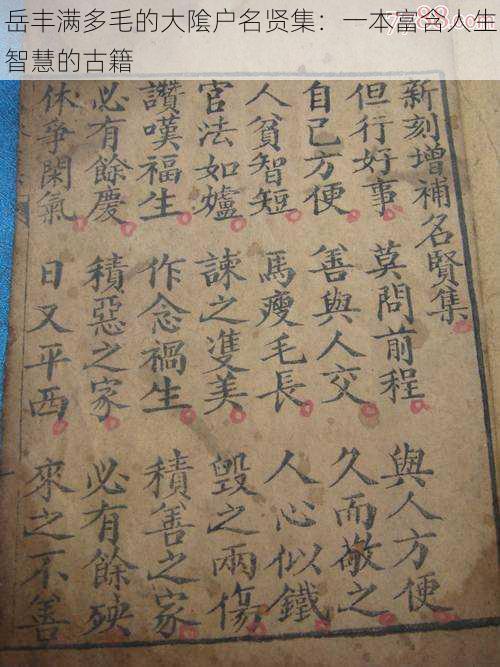 岳丰满多毛的大隂户名贤集：一本富含人生
智慧的古籍
新刻增補名賢集
但行好事 莫問前程 與人方便
自己方便 善與人交 久而敬之
人貧智短 馬瘦毛長 人心似鐵
官法如爐 諫之雙美 毀之兩傷
讚嘆福生 作念禍生 積善之家
必有餘慶 積惡之家 必有餘殃
休爭閑氣 日又平西 來之不善